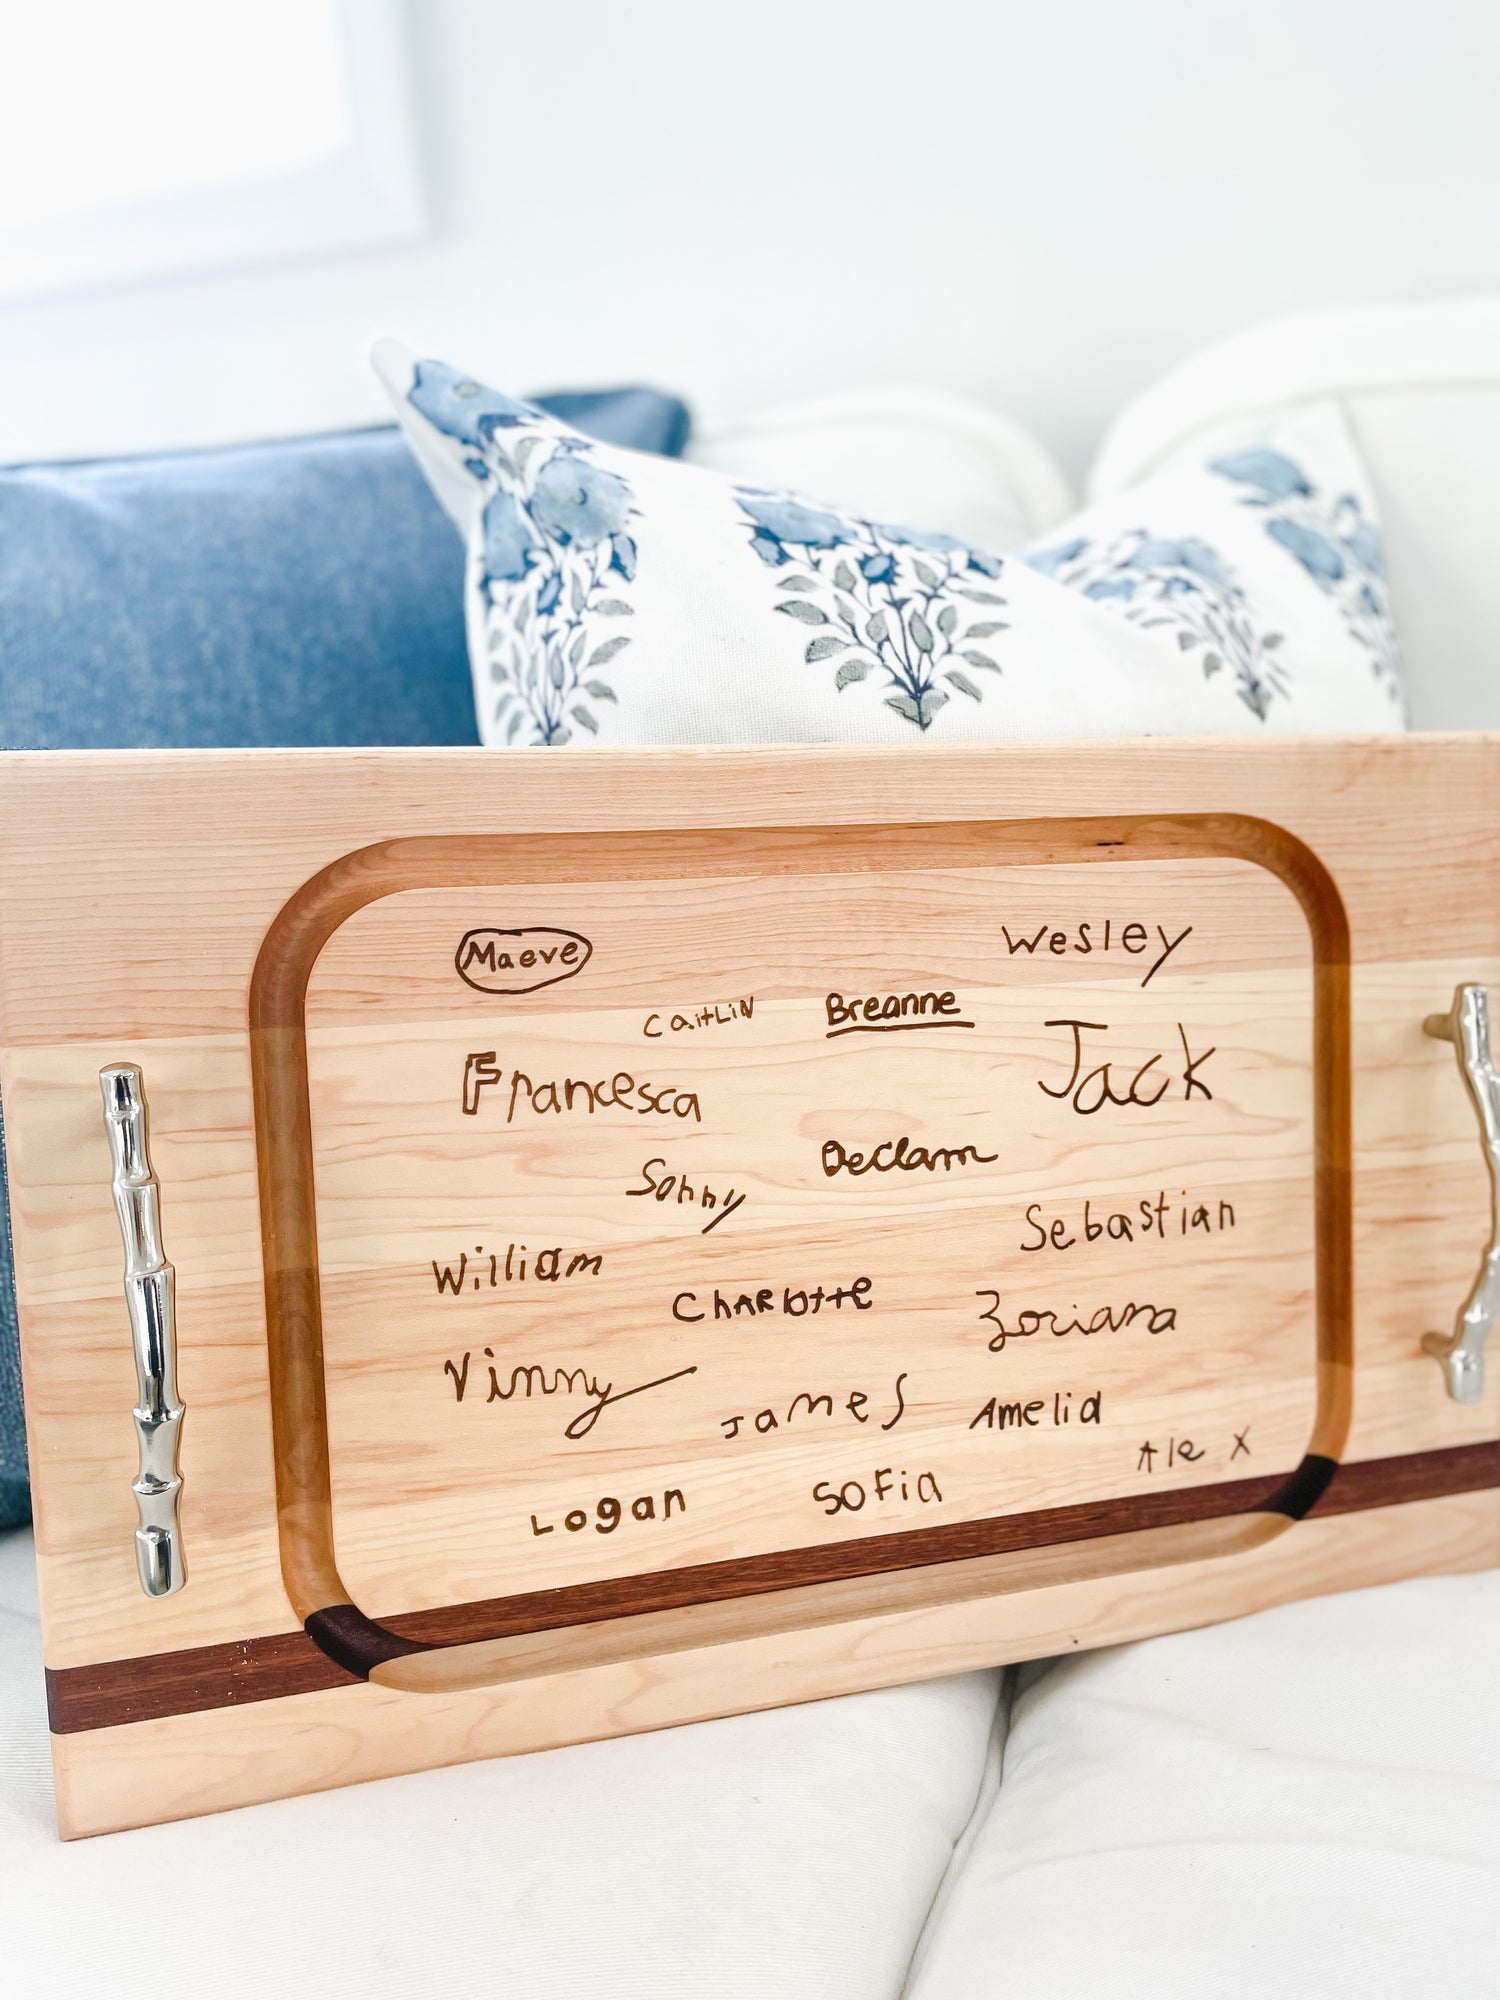 Maeve
Wesley
CaitLiN
Breanne
Francesca
Jack
Sonny
Declann
William
Sebastian
ChARlotte
Zoriana
Vinny
James
Amelia
Alex
Logan
SoFia